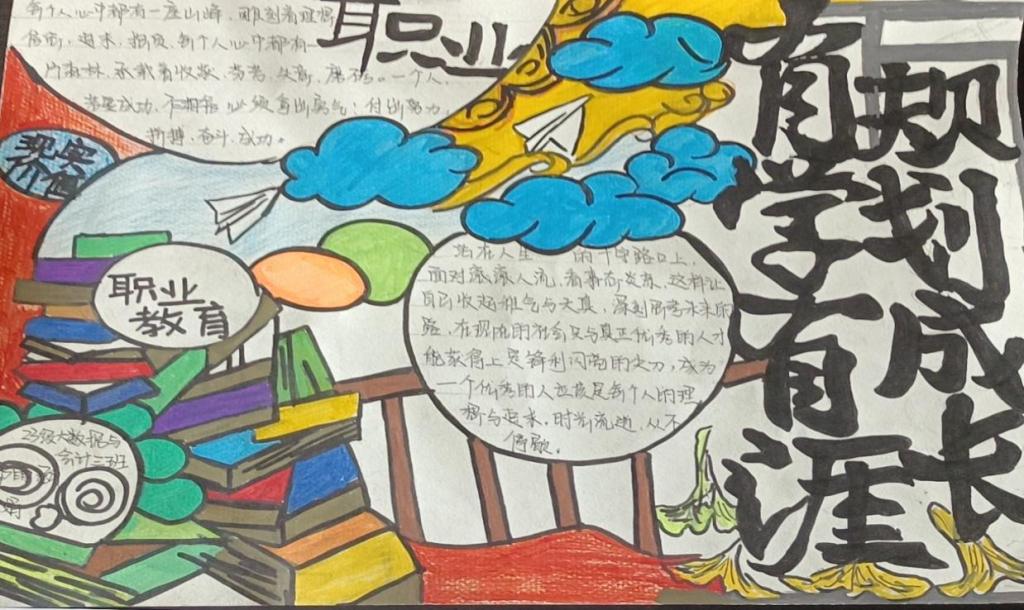 每个人心中都有一座山峰，雕刻着理想、
信念、追求、抱负，每个人心中都有一
片森林，承载着收获、芬芳、失意、磨砺。一个人，
若要成功，不拥有，必须拿出勇气；付出努力、
拼搏、奋斗、成功。
职业
现实
价值
职业
教育
站在人生 的十字路口上，
面对滚滚人流，看事态炎凉，这样让
自己收起稚气与天真，深刻思考未来的
路，在现实的社会只与真正优秀的人才
能获得上更锋利闪亮的尖刀，成为
一个优秀的人应该是每个人的理
想与追求，时光流逝，从不
停歇。
23级大数据与
会计三班
有规
学划
有成
涯长